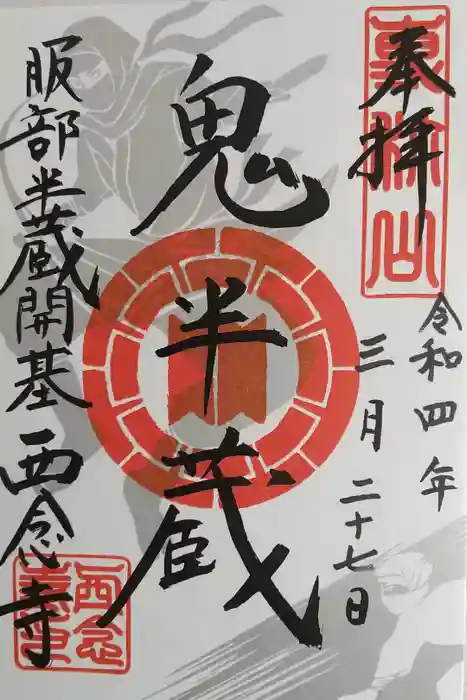 奉拝
令和四年
三月二十七日
鬼半蔵
服部半蔵開基西念寺